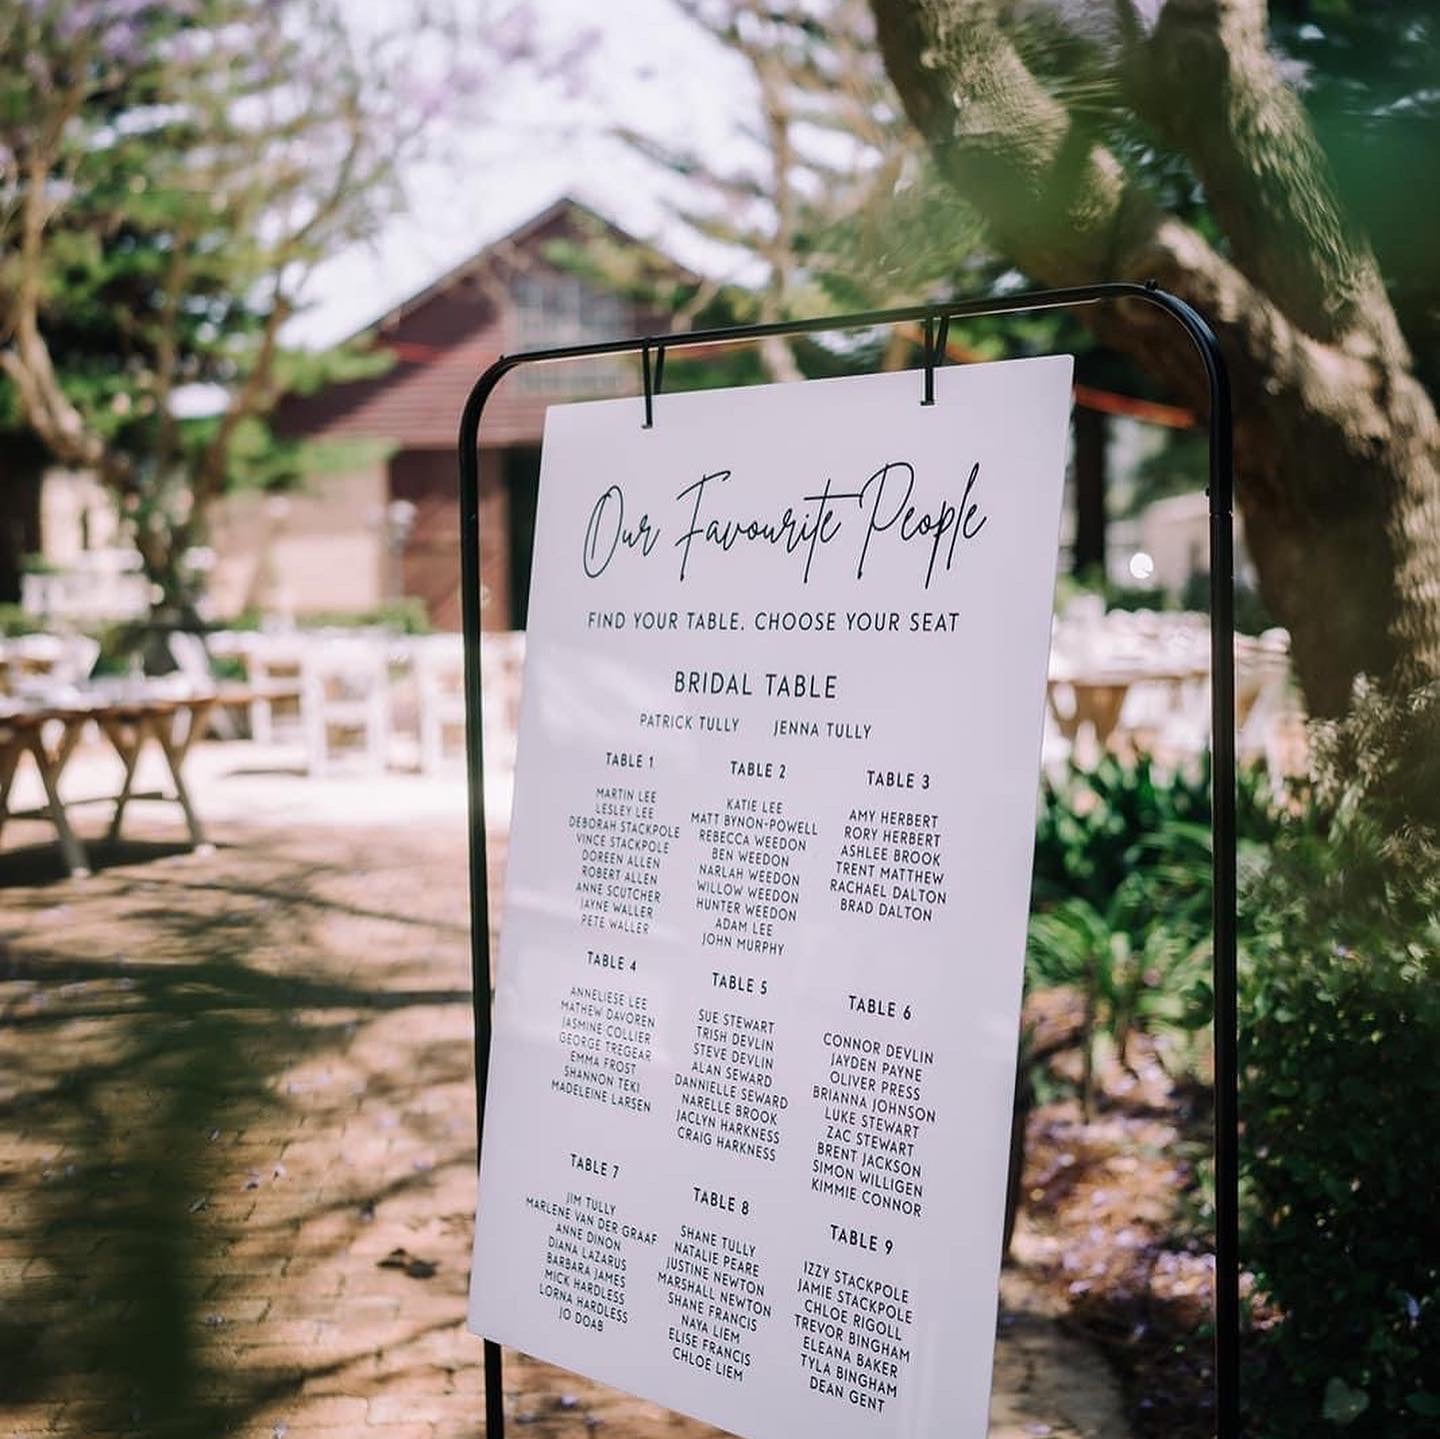 Our Favourite People
FIND YOUR TABLE. CHOOSE YOUR SEAT
BRIDAL TABLE
PATRICK TULLY JENNA TULLY
TABLE 1
MARTIN LEE
LESLEY LEE
DEBORAH STACKPOLE
VINCE STACKPOLE
DOREEN ALLEN
ROBERT ALLEN
ANNE SCUTCHER
JAYNE WALLER
PETE WALLER
TABLE 2
KATIE LEE
MATT BYNON-POWELL
REBECCA WEEDON
BEN WEEDON
NARLAH WEEDON
WILLOW WEEDON
HUNTER WEEDON
ADAM LEE
JOHN MURPHY
TABLE 3
AMY HERBERT
RORY HERBERT
ASHLEE BROOK
TRENT MATTHEW
RACHAEL DALTON
BRAD DALTON
TABLE 4
ANNELIESE LEE
MATHEW DAVOREN
JASMINE COLLIER
GEORGE TREGEAR
EMMA FROST
SHANNON TEKI
MADELEINE LARSEN
TABLE 5
SUE STEWART
TRISH DEVLIN
STEVE DEVLIN
ALAN SEWARD
DANNIELLE SEWARD
NARELLE BROOK
JACLYN HARKNESS
CRAIG HARKNESS
TABLE 6
CONNOR DEVLIN
JAYDEN PAYNE
OLIVER PRESS
BRIANNA JOHNSON
LUKE STEWART
ZAC STEWART
BRENT JACKSON
SIMON WILLIGEN
KIMMIE CONNOR
TABLE 7
JIM TULLY
MARLENE VAN DER GRAAF
ANNE DINON
DIANA LAZARUS
BARBARA JAMES
MICK HARDLESS
LORNA HARDLESS
JO DOAB
TABLE 8
SHANE TULLY
NATALIE PEARE
JUSTINE NEWTON
MARSHALL NEWTON
SHANE FRANCIS
NAYA LIEM
ELISE FRANCIS
CHLOE LIEM
TABLE 9
IZZY STACKPOLE
JAMIE STACKPOLE
CHLOE RIGOLL
TREVOR BINGHAM
ELEANA BAKER
TYLA BINGHAM
DEAN GENT